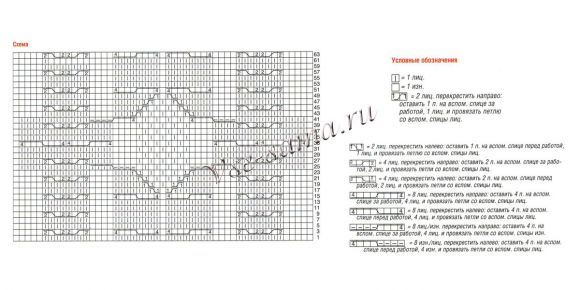 Схема
63
61
59
57
55
53
51
49
47
45
43
41
39
36
30
27
25
23
21
19
17
15
13
11
9
7
5
3
1
Условные обозначения
= 1 лиц.
= 1 изн.
= 2 лиц, перекрестить направо:
оставить 1 п. на вспом. спице за
работой, 1 лиц. и провязать петлю
со вспом. спицы лиц.
= 2 лиц, перекрестить налево: оставить 1 п. на вспом. спице перед работой,
1 лиц. и провязать петлю со вспом. спицы лиц.
= 4 лиц, перекрестить направо: оставить 2 п. на вспом. спице за рабо-
той, 2 лиц. и провязать петли со вспом. спицы лиц.
= 4 лиц, перекрестить налево: оставить 2 п. на вспом. спице перед рабо-
той, 2 лиц. и провязать петли со вспом. спицы лиц.
4 4 = 8 лиц, перекрестить направо: оставить 4 п. на вспом.
спице за работой, 4 лиц, и провязать петли со вспом. спицы лиц.
4 4 = 8 лиц, перекрестить налево: оставить 4 п. на вспом.
спице перед работой, 4 лиц, и провязать петли со вспом. спицы лиц.
4 = 8 лиц/изн, перекрестить направо: оставить 4 п. на
вспом. спице за работой, 4 лиц, и провязать петли со вспом. спицы изн.
4 = 8 изн/лиц, перекрестить налево: оставить 4 п. на вспом.
спице перед работой, 4 изн, и провязать петли со вспом. спицы лиц.